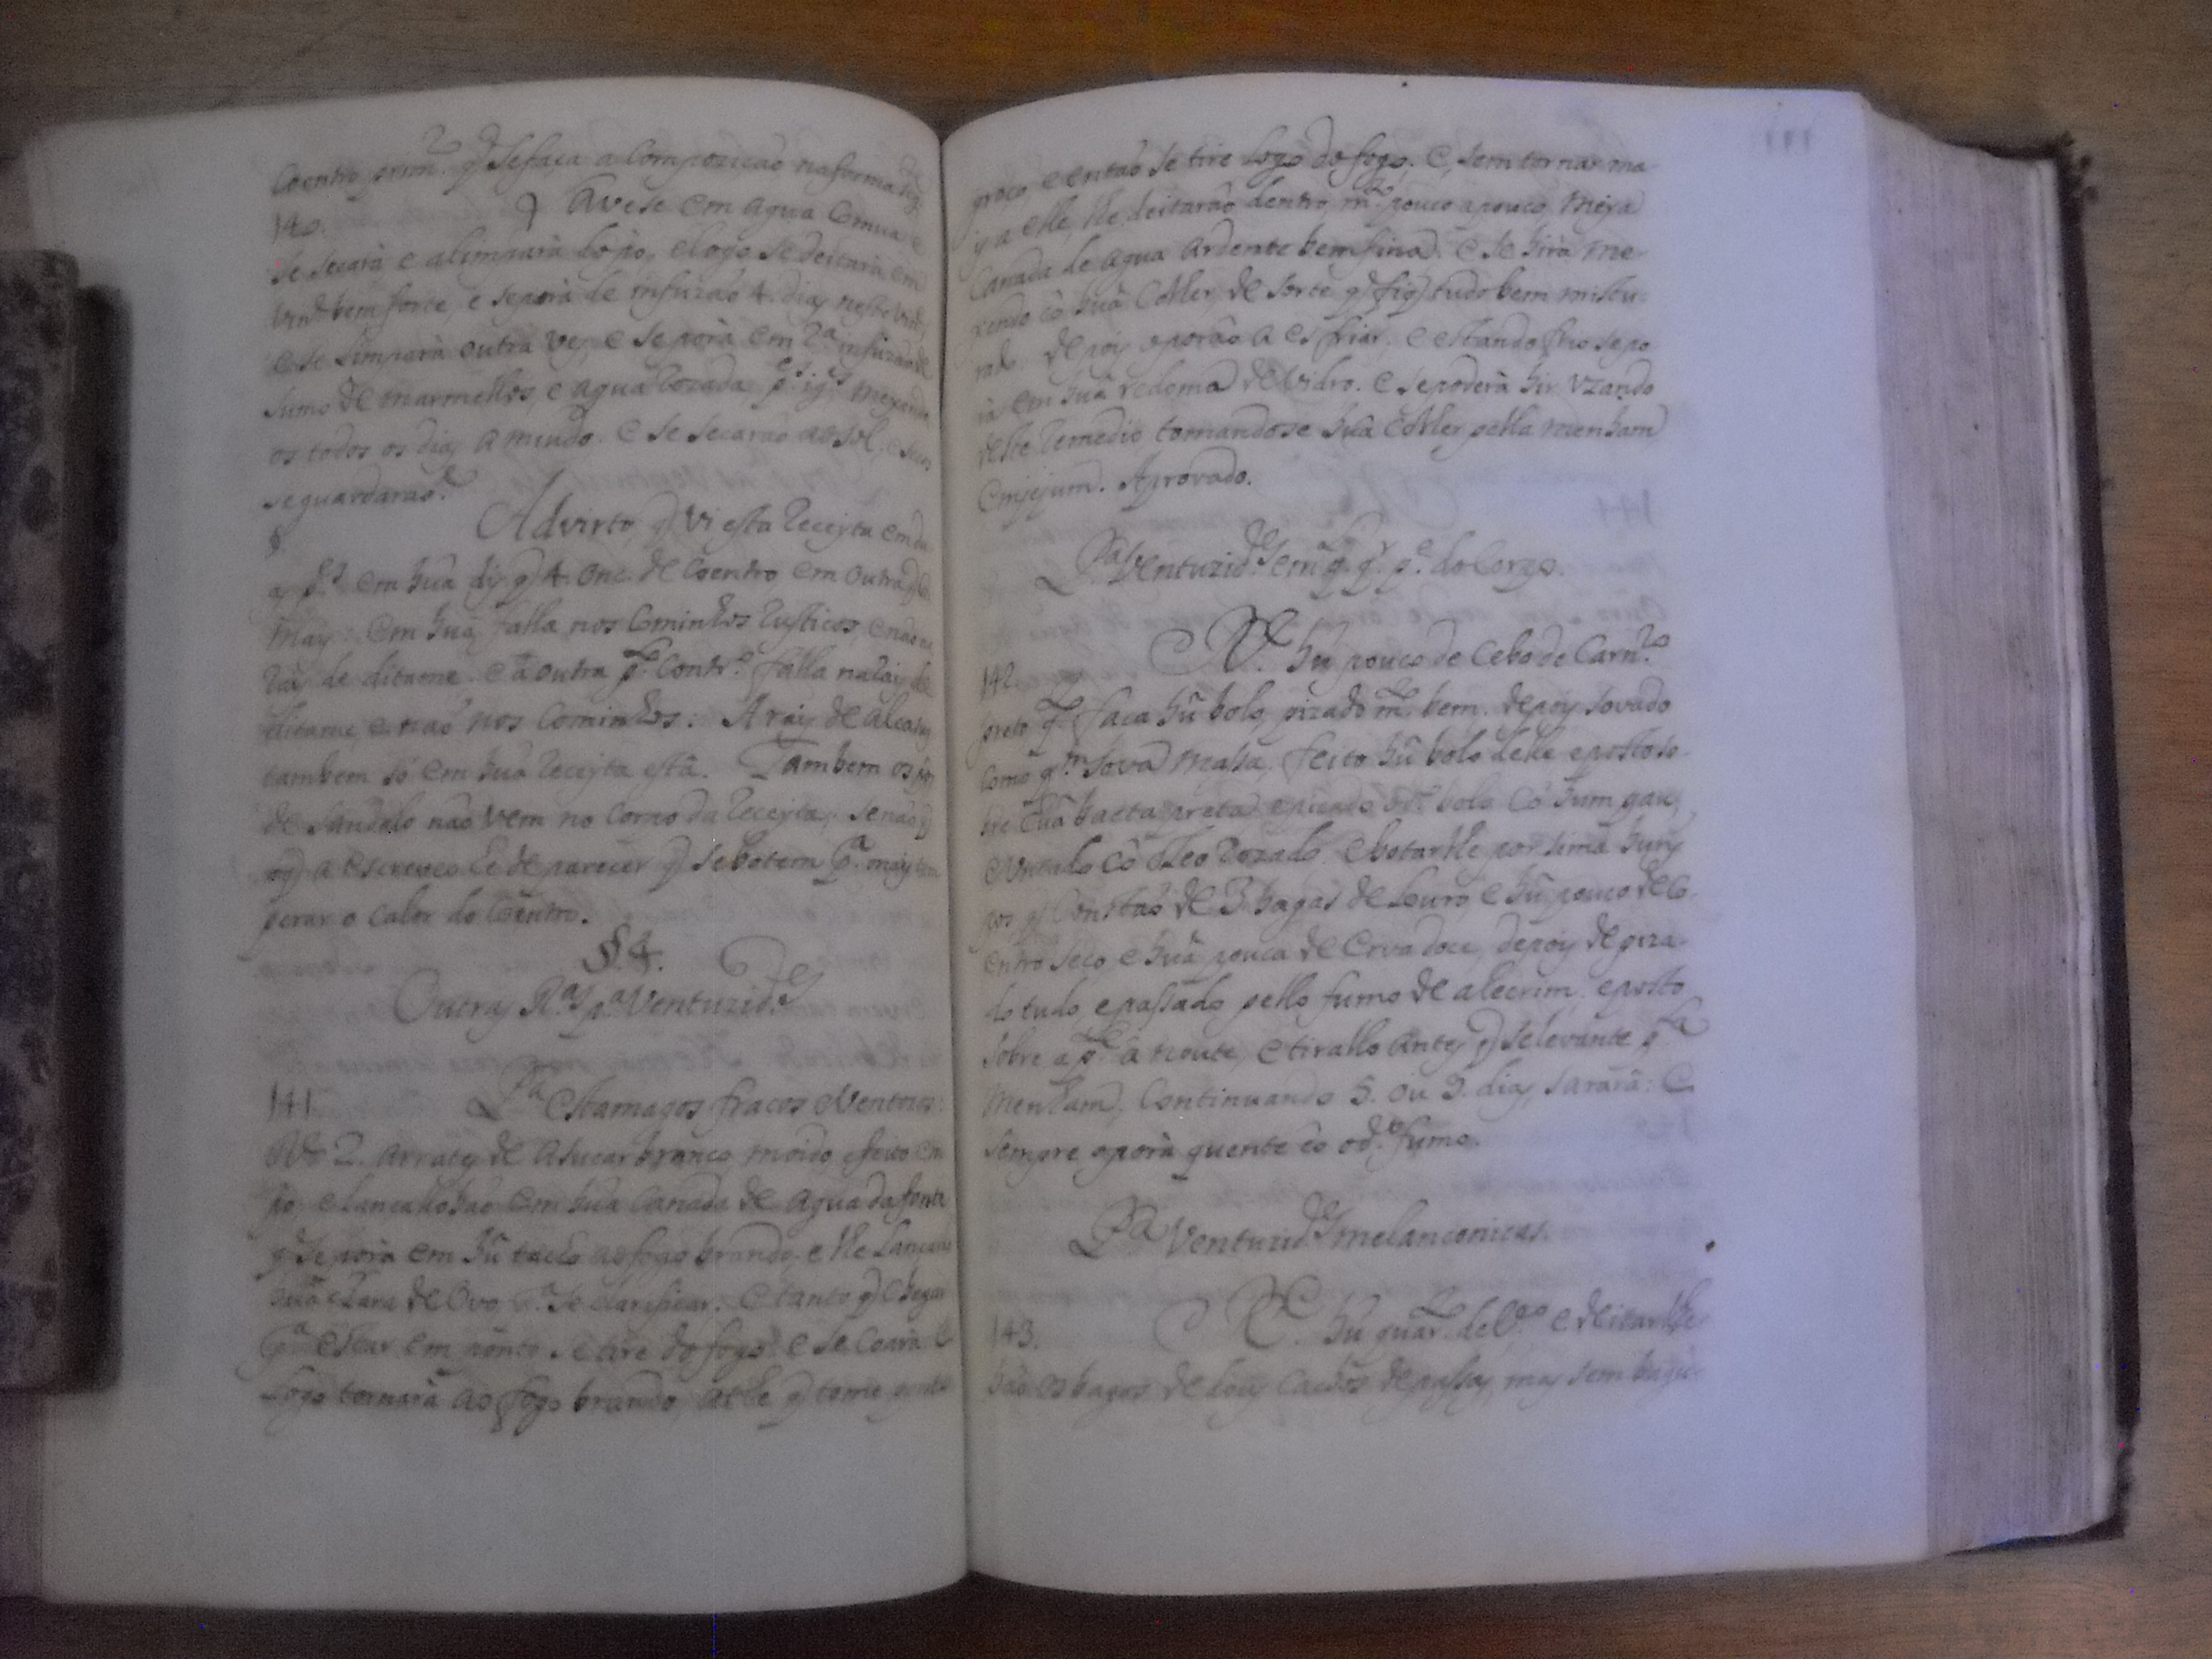 Coentro prim.ro q̃ se faça a Compozição na forma seg.te
140. Lavese em agua Comua e
se secará e alimpará do pó, e logo se deitará em
Vin.e bem forte, e seporá de infuzaõ 4. dias neste Vin.e
e se limpará outra vez, e se porá em 2.a infuzaõ de
sumo de marmellos, e agua Rozada, p.es ig.s mexendo
os todos os dias a miudo. e se secaraõ ao sol, e secos
se guardaraõ.
§ Advirto, q̃ vi esta Receyta em du
as p.es em huã diz q̃ 4. onc. de Coentro em outra
mais: em huã falla nos Cominhos Rusticos, e naõ na
Raiz de ditame. e a outra p.lo Contr.o falla na raiz de
ditame, e naõ nos Cominhos: A raiz de alcaçuz
tambem só em huã Receyta está. Tambem os pós
de sandalo não vem no Corpo da Receyta, senaõ q̃
q̃ a escreveo he de parecer q̃ se botem p.a mais tem
perar o calor do Coentro.
§ 4.
Outras R.as p.a Ventuzid.es
141. P.a estamagos fracos e Ventozos:
Re 2. arrates de asucar branco moido e feito em
pó, e lancallohaõ em huã Canada de agua da fonte
q̃ se porá em hũ tacho ao fogo brando, e lhe lançaraõ
huã clara de Ovo p.a se clarificar. e tanto q̃ chegar
p.a estar em ponto se tire do fogo e se coará e
logo tornará ao fogo brando, athe q̃ tome ponto
groço e entaõ se tire logo do fogo. e, sem tornar ma-
is a elle, lhe deitaraõ dentro m.to pouco a pouco, meya
Canada de agua ardente bem fina. e se hirá me-
xendo cõ huã Colher, de sorte q̃ fiq̃ tudo bem mistu-
rado. depois o poraõ a esfriar; e estando frio se po
rá em huã redoma de vidro. e se poderá hir uzando
deste Remedio tomandose huã Colher pella menham
em jejum. Aprovado.
P.a Ventuzid.es em q.q.r p.e do Corpo.
142. Re. hũ pouco de Cebo de Carn.ro
preto q̃ faca hũ bolo, pizado m.to bem. depois sovado
como q.m sova masa, feito hũ bolo delle e posto so-
bre huã baeta preta e picado o d.o bolo cõ hum gar,
e untalo cõ oleo Rozado. e botarlhe por sima huns
pos q̃ Constaõ de 3 bagas de Louro, e hũ pouco de Co
entro seco, e huã pouca de erva doce, depois de piza-
do tudo, e passado pello fumo de alecrim. e posto
sobre a p.e á noute, e tirallo antes q̃ se levante p.la
menham; Continuando 5. ou 9. dias, sarará: e
sempre o porá quente cõ o d.o fumo.
P.a Ventuzid.es melanconicas.
143. Re. hũ quar.lo de V.o e deitarlhe
haõ os bagos de dous cachos de passas, mas sem bagu-